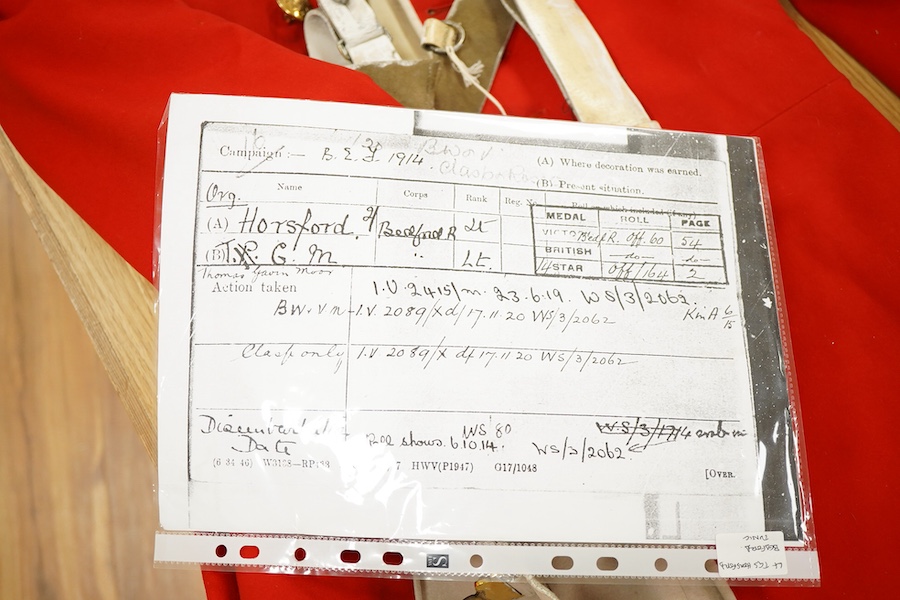 Campaign :— B.E.F. 1914.
(A) Where decoration was earned.
(B) Present situation.
Org. Name Corps. Rank Reg. No.
MEDAL ROLL PAGE
(A) Horsford. 2/ Bedford R Lt
VICTORY Bedf R. Off. 60 54
BRITISH —do— do
(B) G. M " Lt.
14 STAR Off/164 2
Thomas Gavin Moor
Action taken I.V. 2415/M. 23.6.19. WS/3/2062.
BW. V m - I.V. 2089/X d/ 17.11.20 WS/3/2062 K in A 6/15
Clasp only I.V 2089/X df 17.11.20 WS/3/2062
WS '80 WS/3/1714
Date shows. 6.10.14. WS/3/2062
(6 34 46) HWV(P1947) G17/1048 [OVER.
Lt TGS Horsford
Bedford
Tunic